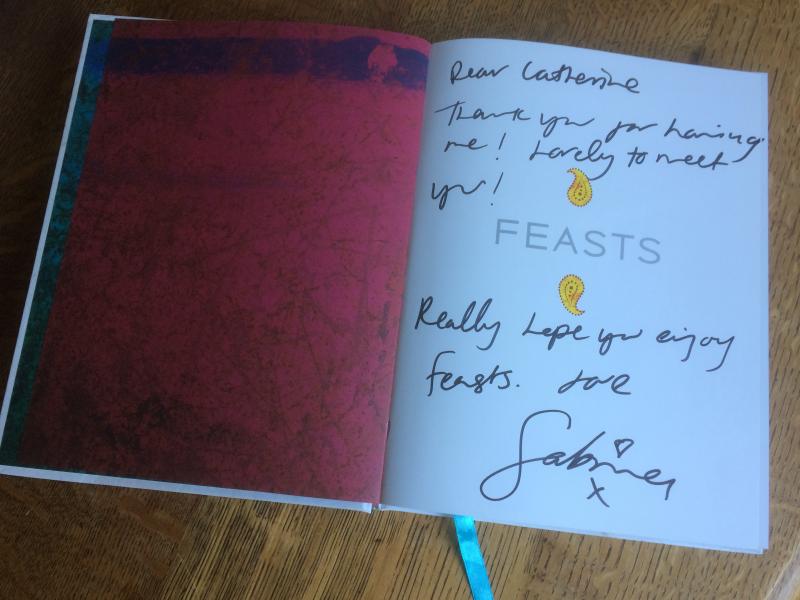 Dear Catherine
Thank you for having
me! Lovely to meet
you!
FEASTS
Really hope you enjoy
Feasts. Love
Sabrina
x